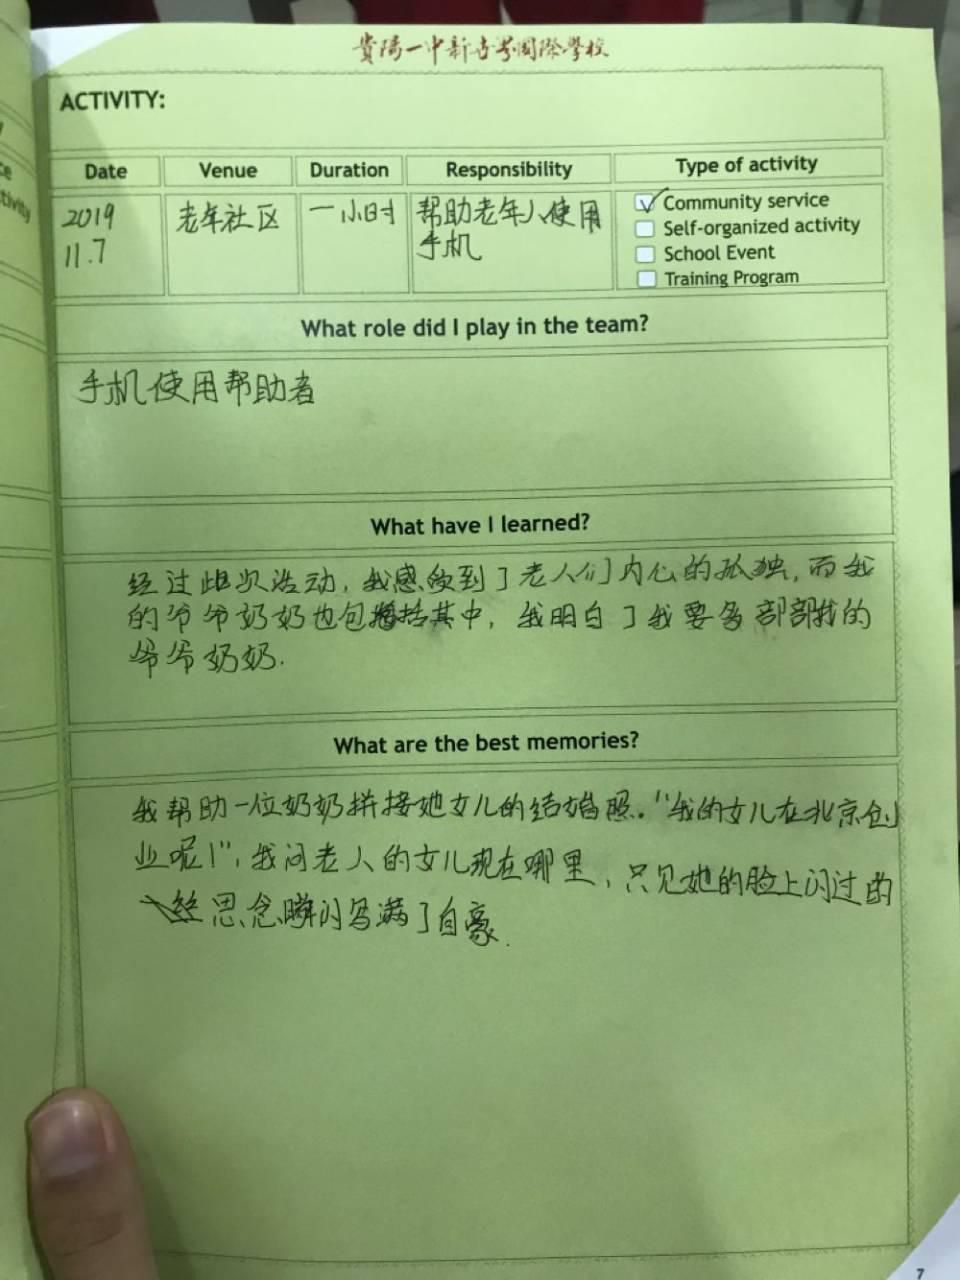 貴陽一中新世界國際學校
ACTIVITY:
Date Venue Duration Responsibility Type of activity
2019
11.7
老年社区
一小时
帮助老年人使用
手机
Community service
Self-organized activity
School Event
Training Program
What role did I play in the team?
手机使用帮助者
What have I learned?
经过此次活动,我感受到了老人们内心的孤独,而我
的爷爷奶奶也包括其中,我明白了我要多部部我的
爷爷奶奶.
What are the best memories?
我帮助一位奶奶拼接她女儿的结婚照."我的女儿在北京创
业呢!",我问老人的女儿现在哪里,只见她的脸上闪过的
一丝思念瞬间写满了自豪.
7